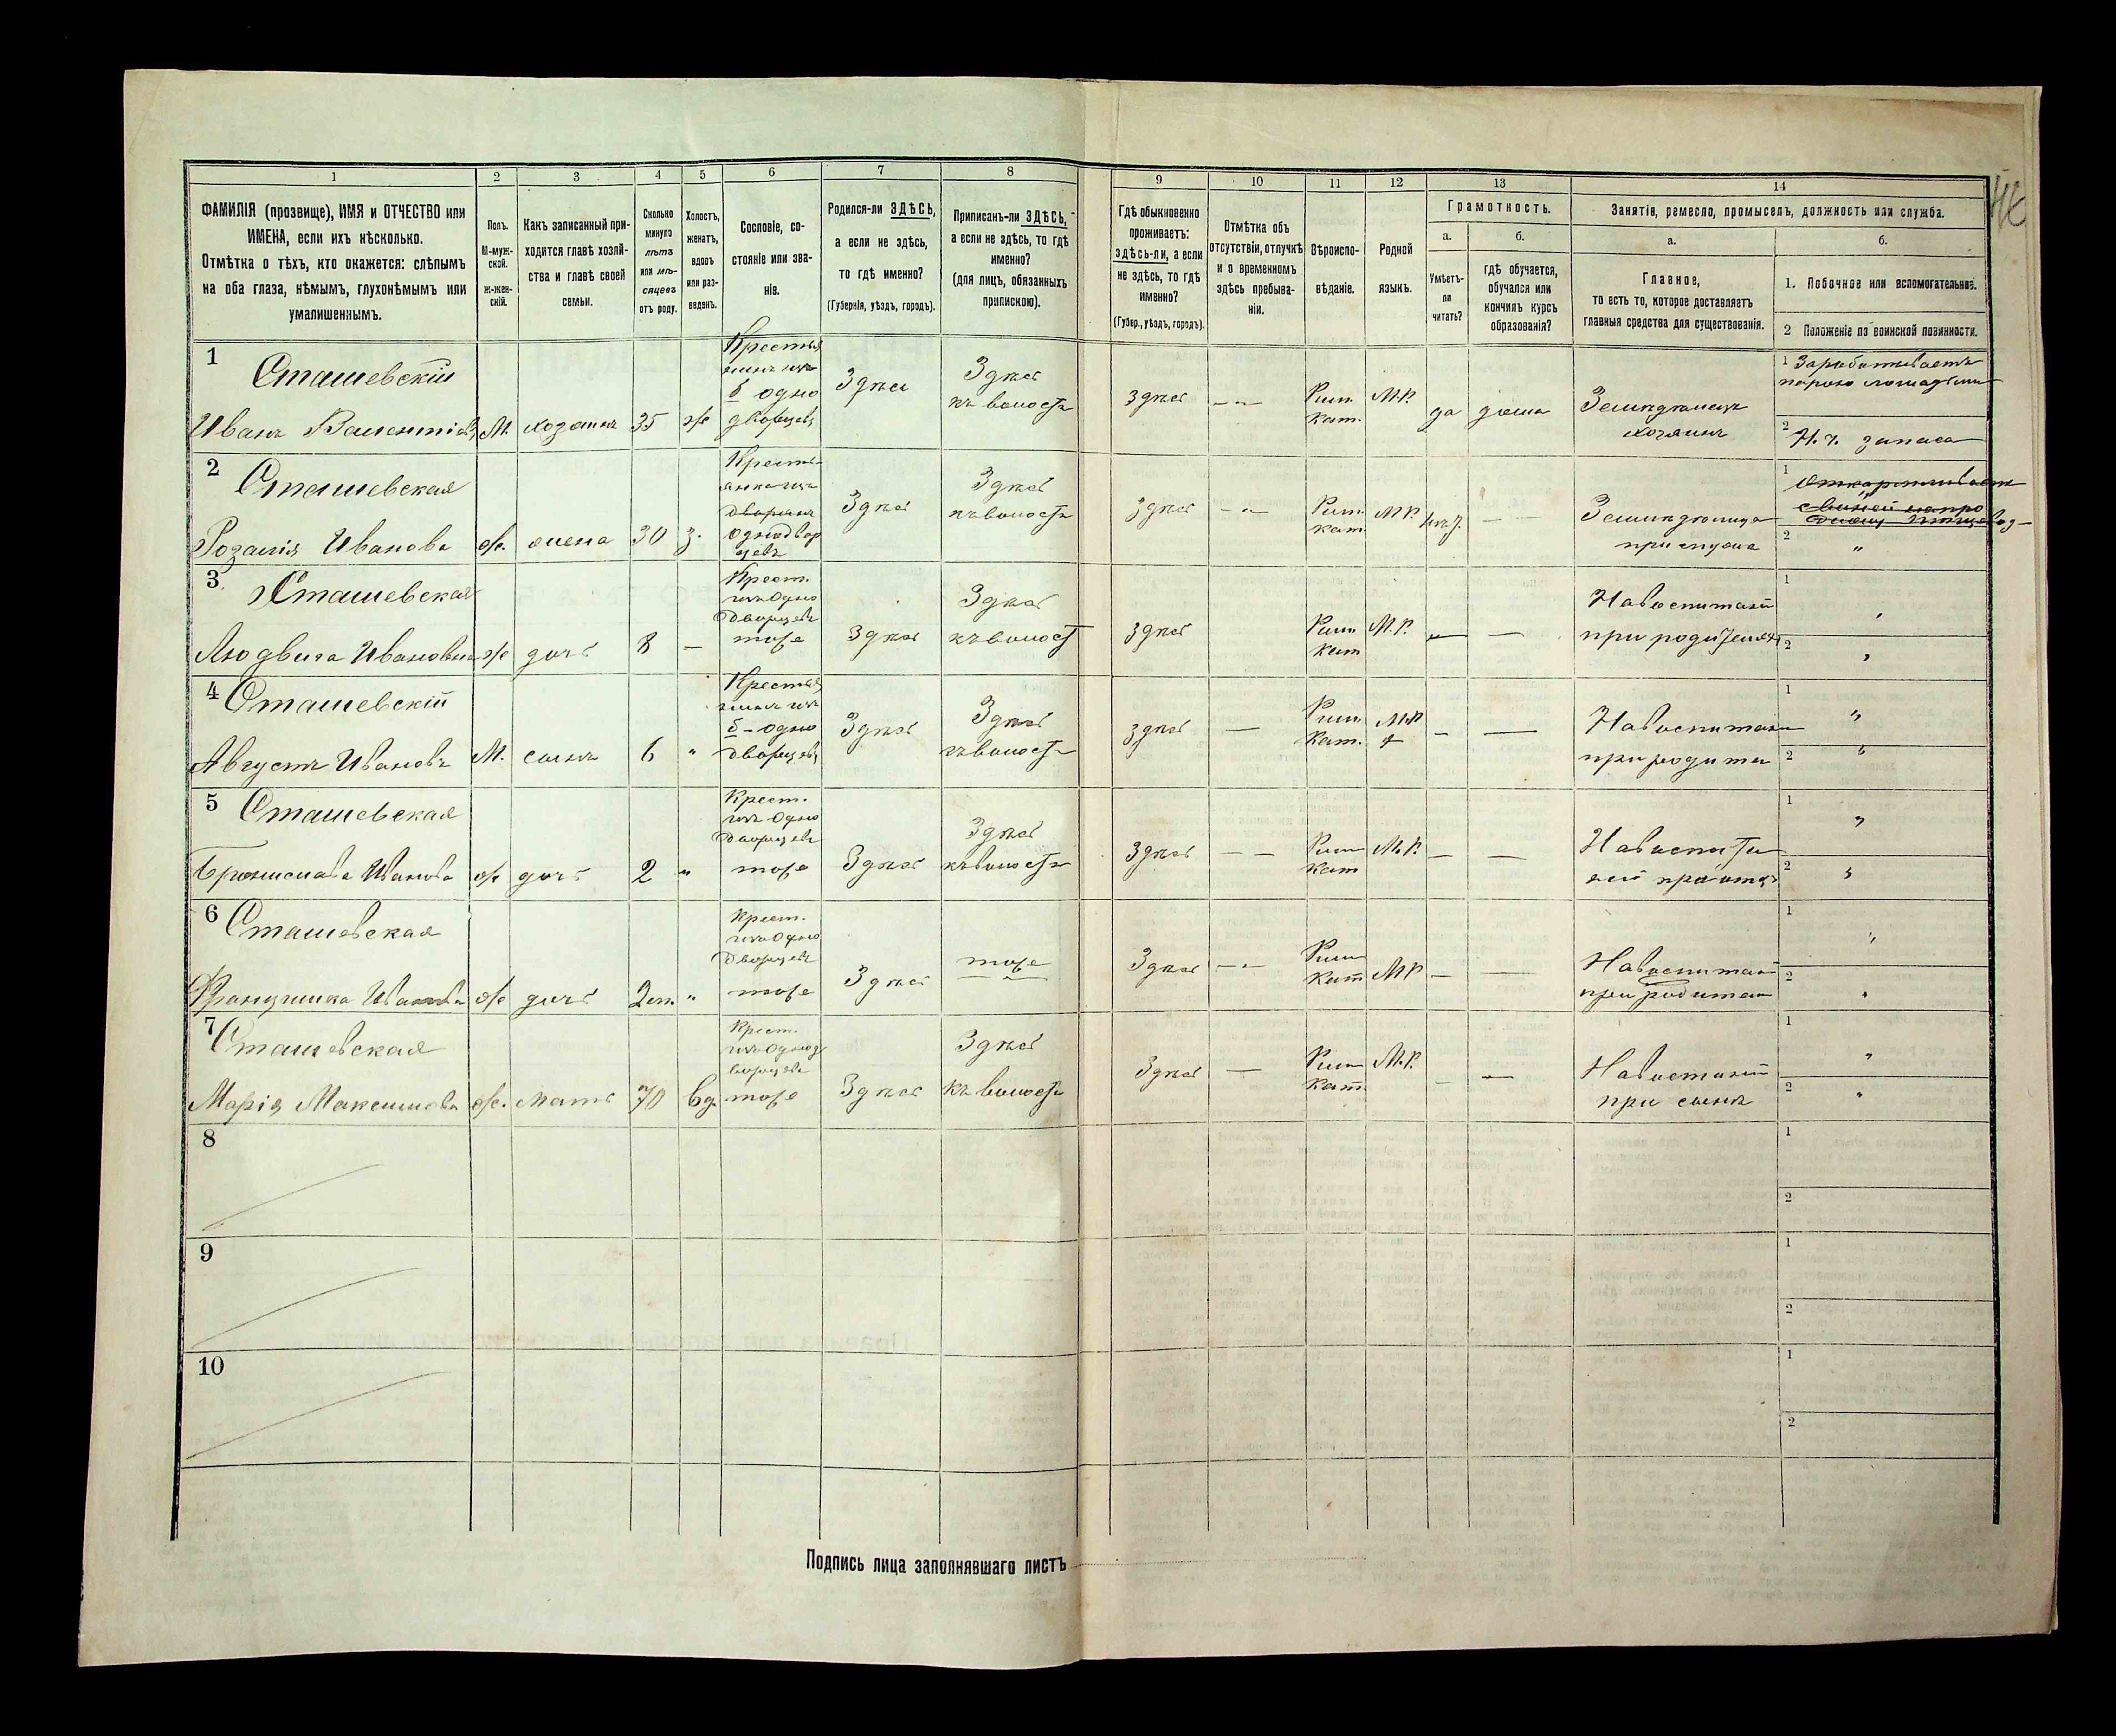 1 2 3 4 5 6 7 8 9 10 11 12 13 14
ФАМИЛІЯ (прозвище), ИМЯ и ОТЧЕСТВО или
ИМЕНА, если ихъ нѣсколько.
Отмѣтка о тѣхъ, кто окажется: слѣпымъ
на оба глаза, нѣмымъ, глухонѣмымъ или
умалишеннымъ.
Полъ.
М-муж-
ской.
Ж-жен-
скій.
Какъ записанный при-
ходится главѣ хозяй-
ства и главѣ своей
семьи.
Сколько
минуло
лѣтъ
или мѣ-
сяцевъ
отъ роду.
Холостъ,
женатъ,
вдовъ
или раз-
веденъ.
Сословіе, со-
стояніе или зва-
ніе.
Родился-ли ЗДѢСЬ,
а если не здѣсь,
то гдѣ именно?
(Губернія, уѣздъ, городъ).
Приписанъ-ли ЗДѢСЬ,
а если не здѣсь, то гдѣ
именно?
(для лицъ, обязанныхъ
припискою).
Гдѣ обыкновенно
проживаетъ:
здѣсь-ли, а если
не здѣсь, то гдѣ
именно?
(Губер., уѣздъ, городъ).
Отмѣтка объ
отсутствіи, отлучкѣ
и о временномъ
здѣсь пребыва-
ніи.
Вѣроиспо-
вѣданіе.
Родной
языкъ.
Грамотность.
а.
Умѣетъ-
ли
читать?
б.
гдѣ обучается,
обучался или
кончилъ курсъ
образованія?
Занятіе, ремесло, промыселъ, должность или служба.
а.
Главное,
то есть то, которое доставляетъ
главныя средства для существованія.
б.
1. Побочное или вспомогательное.
2 Положеніе по воинской повинности.
1
Сташевскій
Иванъ
М. хозяинъ 35 ж
одно
дворцевъ
Здѣсь
Здѣсь
къ волости
Здѣсь
Рим
Кат.
М.Р.
да дома
хозяинъ
1 Зарабатываетъ
парою лошадьми
2 запаса
2
Сташевская
Розалія Иванова
ж. жена 30 з.
Кресть-
дворянъ
однодвор
цевъ
Здѣсь
Здѣсь
къ волости
Здѣсь
Рим.
кат.
М.Р.
при мужѣ
1
2 "
3
Сташевская
Людвига Ивановна
ж дочь 8 —
Крест.
изъ одно
дворцевъ
тоже
Здѣсь
Здѣсь
къ волост
Здѣсь
Рим
Кат
М.Р.
— —
при родителяхъ
1
2
4
Сташевскій
Августъ Ивановъ
М. сынъ 6 "
одно
дворцевъ
Здѣсь
Здѣсь
къ волости
Здѣсь
—
Рим
Кат.
М.Р.
— —
1 "
2 "
5
Сташевская
Брониславa Иванова
ж дочь 2 "
Крест.
изъ одно
дворцевъ
тоже
Здѣсь
Здѣсь
къ волости
Здѣсь
— —
Рим
Кат
М.Р.
— —
1 "
2 "
6
Сташевская
Францишка Иванова
ж дочь "
Крест.
изъ одно
дворцевъ
тоже
Здѣсь
тоже
Здѣсь
Рим
Кат
МР
— —
1 "
2 "
7
Сташевская
Марія Максимова
ж. мать 70 вд.
Крест.
изъ однод
ворцевъ
тоже
Здѣсь
Здѣсь
къ волости
Здѣсь
—
Рим
Кат.
М.Р.
— —
при сынѣ
1 "
2 "
8
1
2
9
1
2
10
1
2
Подпись лица заполнявшаго листъ